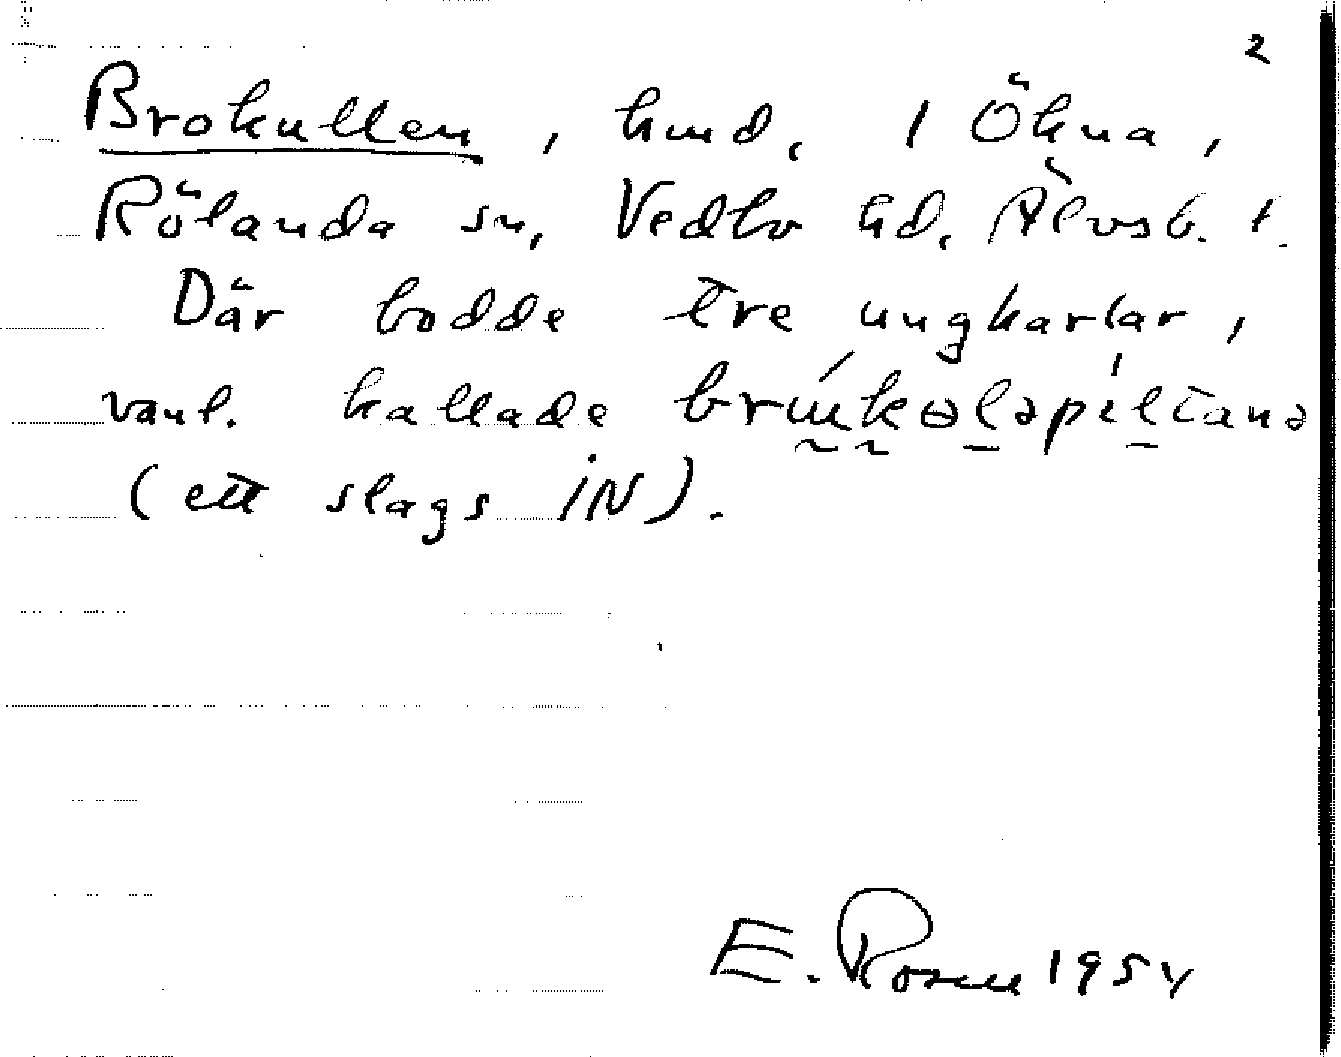 2
Brokullen, hmd. 1 Ökna,
Rölanda sn, Vedbo hd. Älvsb. l.
Där bodde tre ungkarlar,
vanl. kallade
(ett slags iN).
E. Rosell 1954